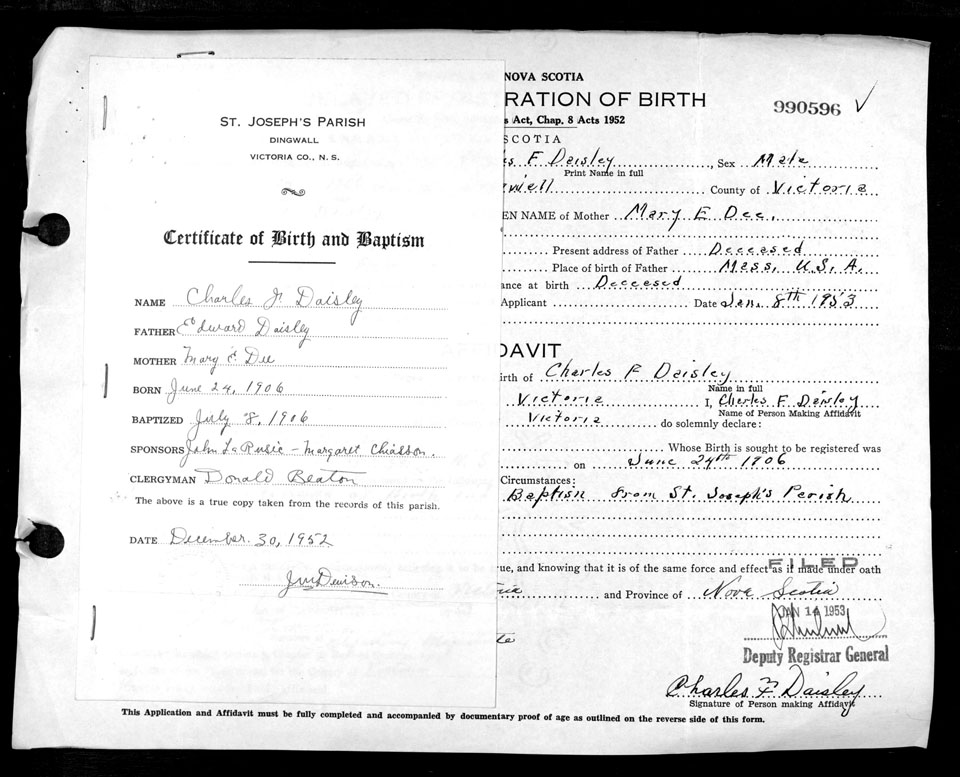 ST. JOSEPH'S PARISH
DINGWALL
VICTORIA CO., N. S.
Certificate of Birth and Baptism
NAME Charles F. Daisley
FATHER Edward Daisley
MOTHER Mary E. Dee
BORN June 24, 1906
BAPTIZED July 8, 1906
SPONSORS John LaRusic - Margaret Chiasson.
CLERGYMAN Donald Beaton
The above is a true copy taken from the records of this parish.
DATE December 30, 1952
NOVA SCOTIA
RATION OF BIRTH
990596 ✓
s Act, Chap. 8 Acts 1952
SCOTIA
s F. Daisley, Sex Male
Print Name in full
County of Victoria
EN NAME of Mother Mary E Dee.
Present address of Father Deceased
Place of birth of Father Mass. U.S.A.
ance at birth Deceased
Applicant Date Jan. 8th 1953
DAVIT
irth of Charles F Daisley
Name in full
Victoria I, Charles F. Daisley
Name of Person Making Affidavit
Victoria do solemnly declare:
Whose Birth is sought to be registered was
on June 24th 1906
Circumstances:
Baptism from St. Joseph's Parish
ue, and knowing that it is of the same force and effect as if made under oath
FILED
and Province of Nova Scotia
JAN 14 1953
Deputy Registrar General
Charles F Daisley
Signature of Person making Affidavit
This Application and Affidavit must be fully completed and accompanied by documentary proof of age as outlined on the reverse side of this form.